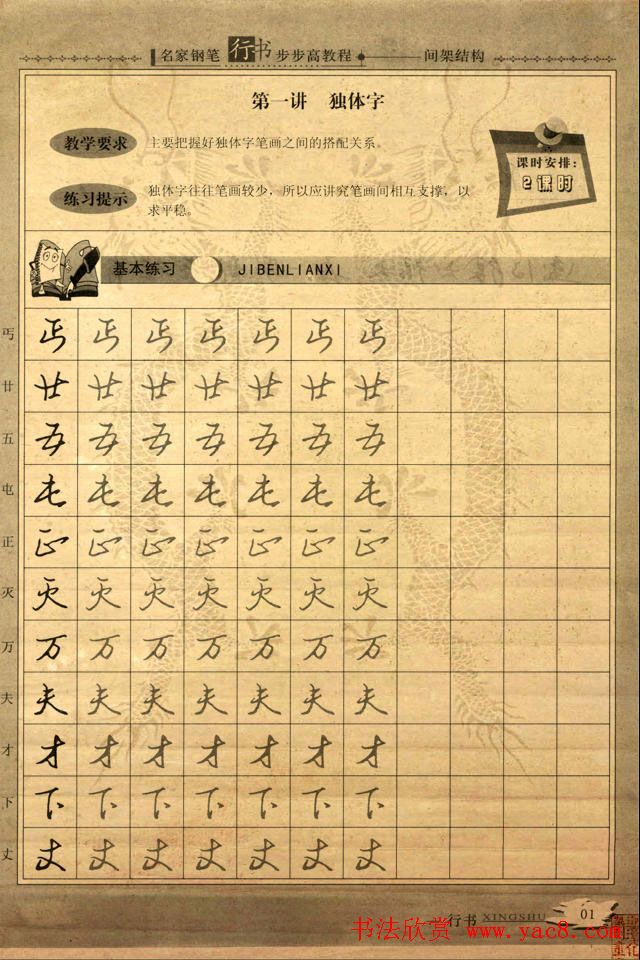 名家钢笔 行书 步步高教程 间架结构
第一讲 独体字
教学要求 主要把握好独体字笔画之间的搭配关系。
课时安排：
2课时
练习提示 独体字往往笔画较少，所以应讲究笔画间相互支撑，以
求平稳。
基本练习 JIBENLIANXI
丐 丐 丐 丐 丐 丐 丐 丐
廿 廿 廿 廿 廿 廿 廿 廿
五 五 五 五 五 五 五 五
屯 屯 屯 屯 屯 屯 屯 屯
正 正 正 正 正 正 正 正
灭 灭 灭 灭 灭 灭 灭 灭
万 万 万 万 万 万 万 万
夫 夫 夫 夫 夫 夫 夫 夫
才 才 才 才 才 才 才 才
下 下 下 下 下 下 下 下
丈 丈 丈 丈 丈 丈 丈 丈
行书 XINGSHU 01
书法欣赏 www.yac8.com